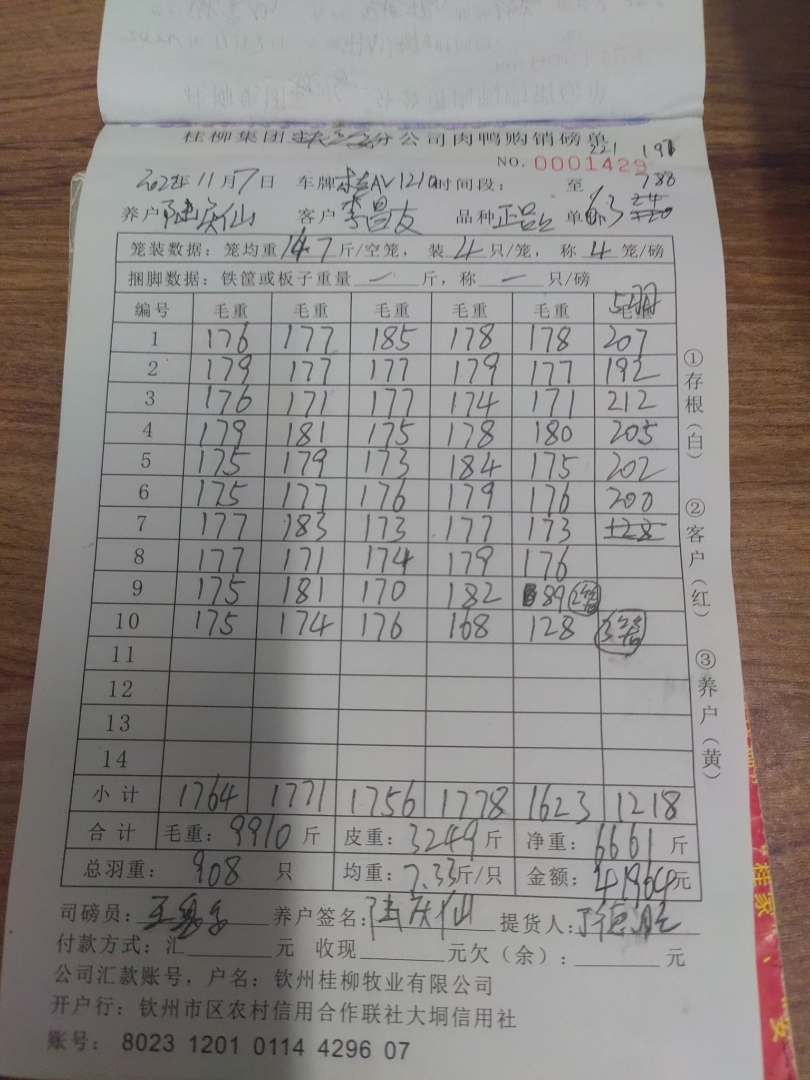 桂柳集团 分公司肉鸭购销磅单
NO. 0001429
221 197
2022年11月7日 车牌 AV1210 时间段: 至 788
养户 陆庆仙 客户 李昌友 品种 正品 单价 6.3
笼装数据: 笼均重 14.7 斤/空笼, 装 4 只/笼, 称 4 笼/磅
捆脚数据: 铁筐或板子重量 一 斤, 称 一 只/磅
编号 毛重 毛重 毛重 毛重 毛重 5羽
1 176 177 185 178 178 207
2 179 177 177 179 177 192
3 176 171 177 174 171 212
4 179 181 175 178 180 205
5 175 179 173 184 175 202
6 175 177 176 179 176 200
7 177 183 173 177 173 128
8 177 171 174 179 176
9 175 181 170 182 89 2笼
10 175 174 176 168 128 3笼
11
12
13
14
小计 1764 1771 1756 1778 1623 1218
合计 毛重: 9910 斤 皮重: 3249 斤 净重: 6661 斤
总羽重: 908 只 均重: 7.33 斤/只 金额: 41964 元
司磅员: 养户签名: 陆庆仙 提货人:
付款方式: 汇 元 收现 元欠(余): 元
公司汇款账号, 户名: 钦州桂柳牧业有限公司
开户行: 钦州市区农村信用合作联社大垌信用社
账号: 8023 1201 0114 4296 07
①存根(白)
②客户(红)
③养户(黄)